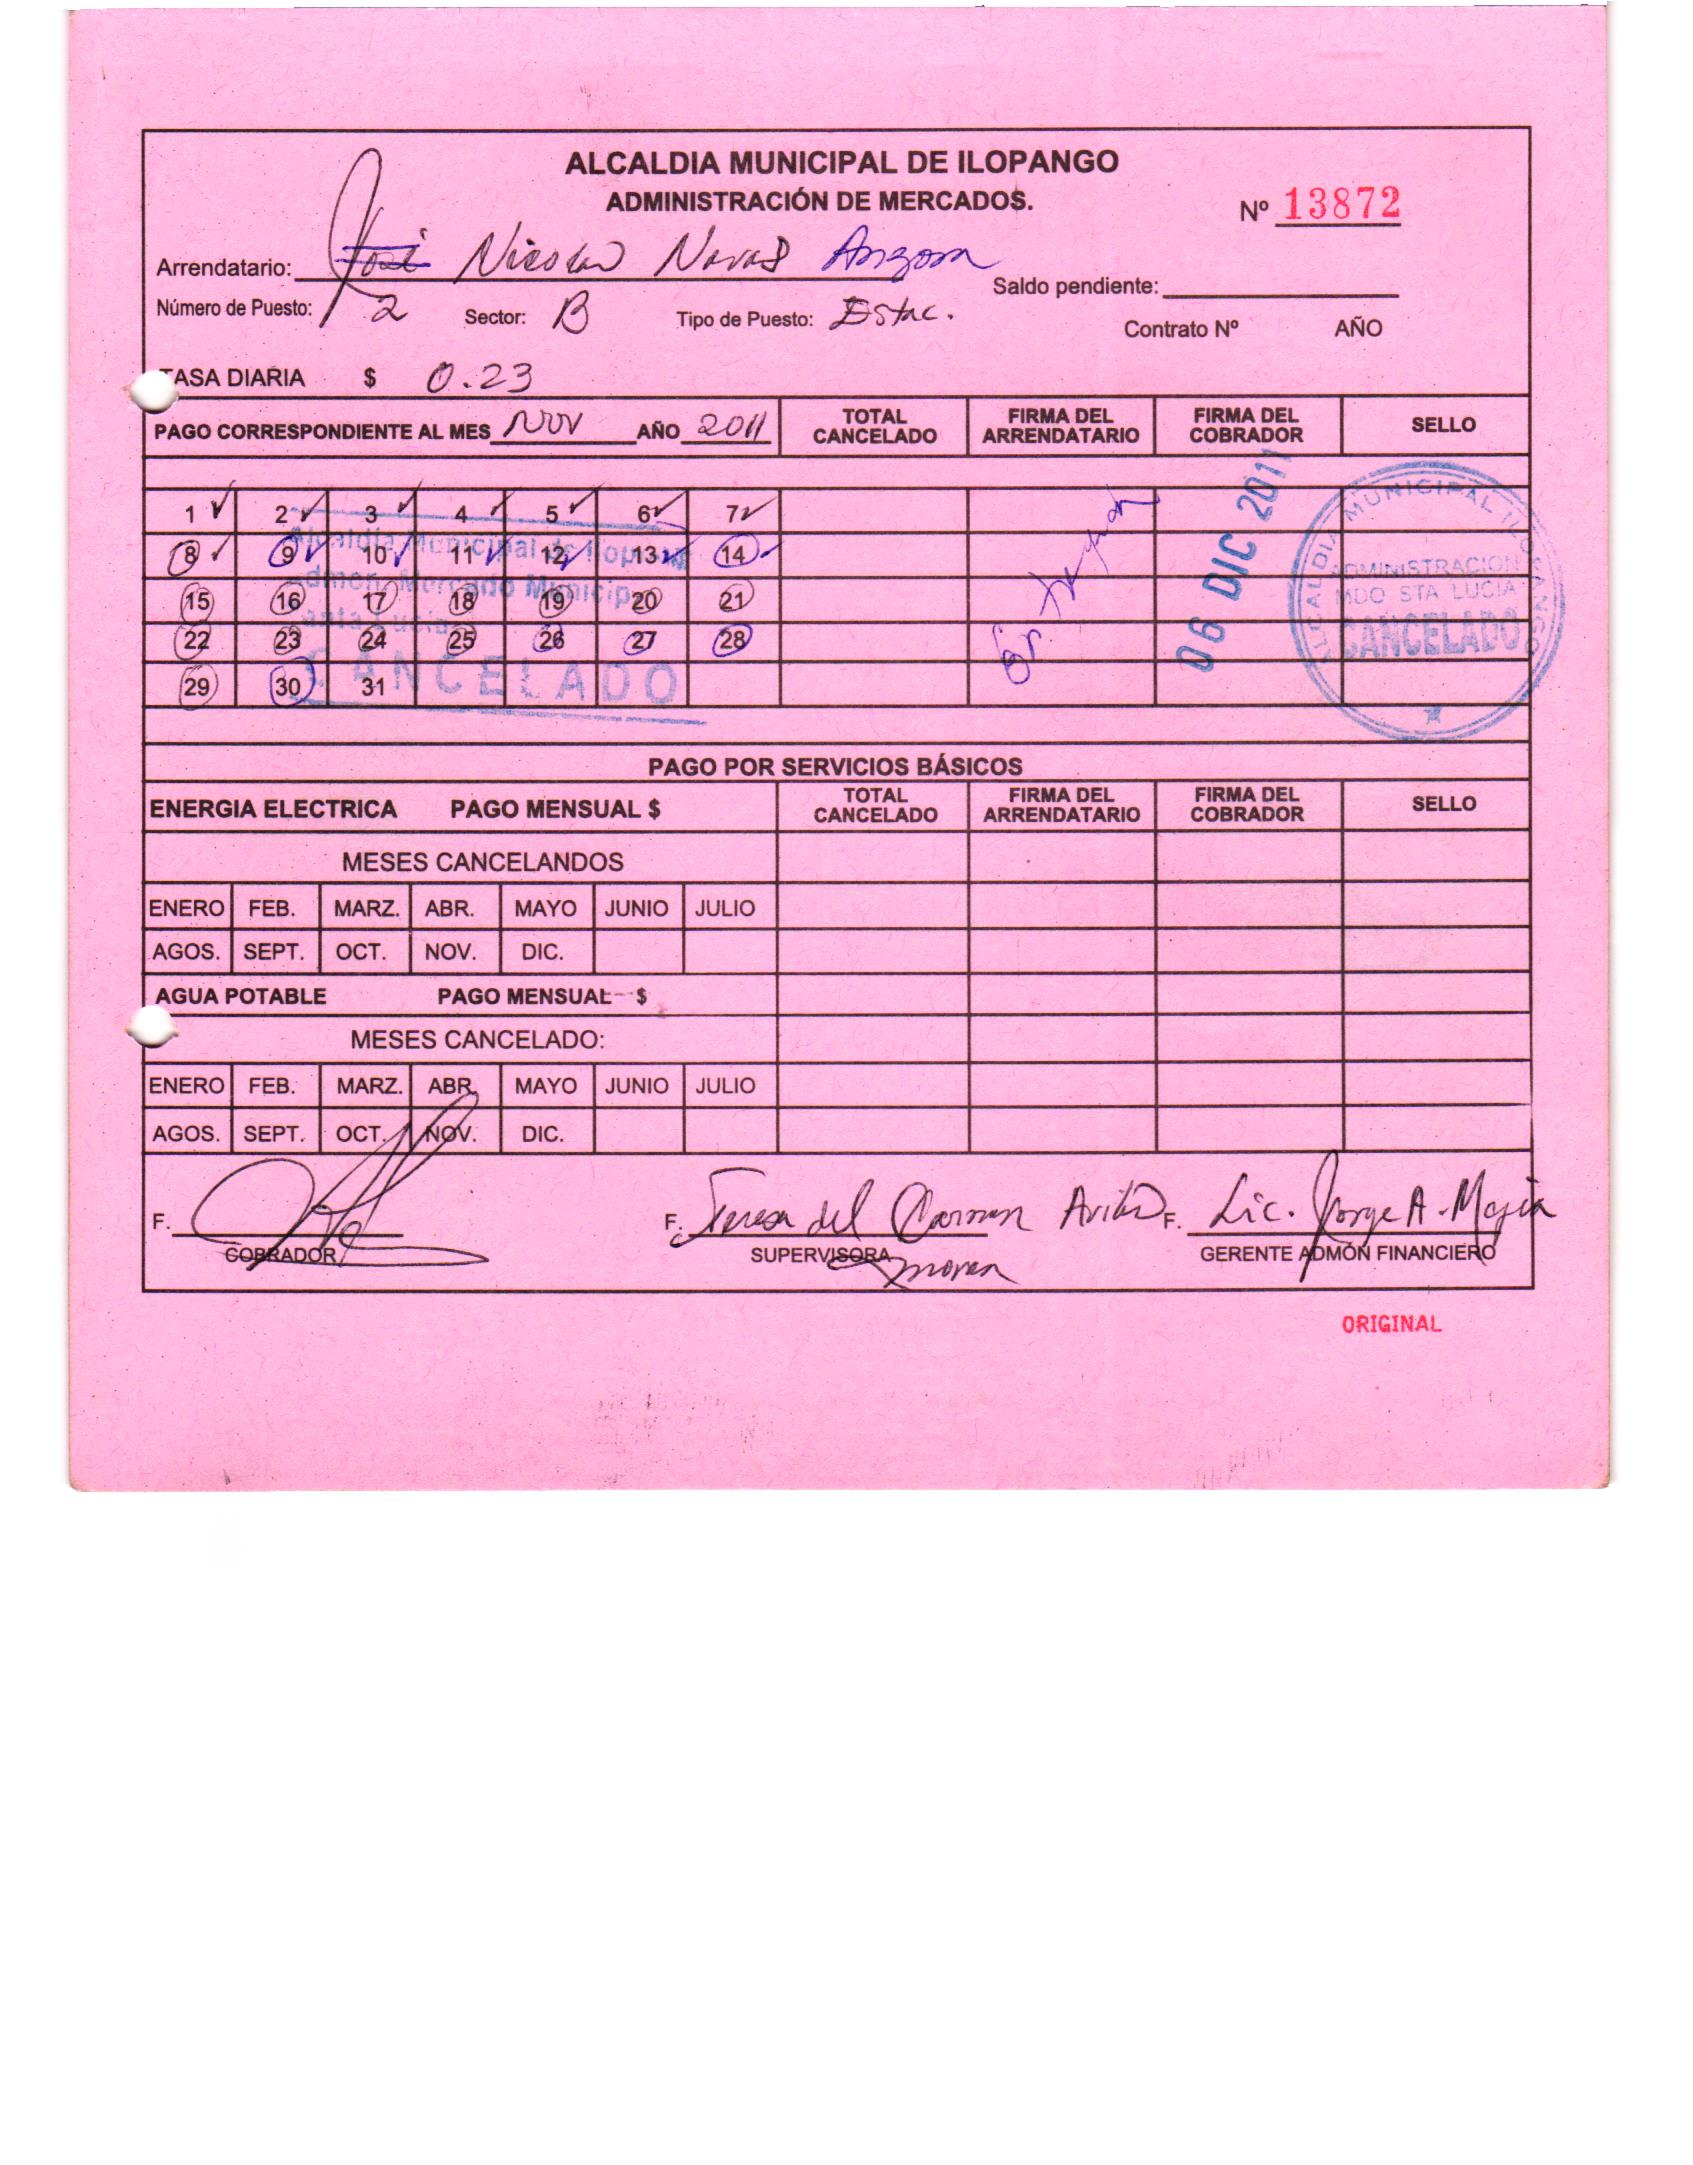 ALCALDIA MUNICIPAL DE ILOPANGO
ADMINISTRACIÓN DE MERCADOS.
Nº 13872
Arrendatario: José Nicolas Navas
Saldo pendiente:
Número de Puesto: 2 Sector: B Tipo de Puesto: Estac.
Contrato Nº AÑO
TASA DIARIA $ 0.23
PAGO CORRESPONDIENTE AL MES NOV AÑO 2011 TOTAL CANCELADO FIRMA DEL ARRENDATARIO FIRMA DEL COBRADOR SELLO
1 2 3 4 5 6 7
8 9 10 11 12 13 14
15 16 17 18 19 20 21
22 23 24 25 26 27 28
29 30 31
Alcaldia Municipal de Ilop
dmon. Mercado Municip
anta Lucia
CANCELADO
06 DIC 2011
ALCALDIA MUNICIPAL ILOPANGO
ADMINISTRACION
MDO STA LUCIA
CANCELADO
PAGO POR SERVICIOS BÁSICOS
ENERGIA ELECTRICA PAGO MENSUAL $ TOTAL CANCELADO FIRMA DEL ARRENDATARIO FIRMA DEL COBRADOR SELLO
MESES CANCELANDOS
ENERO FEB. MARZ. ABR. MAYO JUNIO JULIO
AGOS. SEPT. OCT. NOV. DIC.
AGUA POTABLE PAGO MENSUAL $
MESES CANCELADO:
ENERO FEB. MARZ. ABR. MAYO JUNIO JULIO
AGOS. SEPT. OCT. NOV. DIC.
F. F. Teresa del Carmen F. Lic. Jorge A. Mejia
COBRADOR SUPERVISORA GERENTE ADMÓN FINANCIERO
ORIGINAL